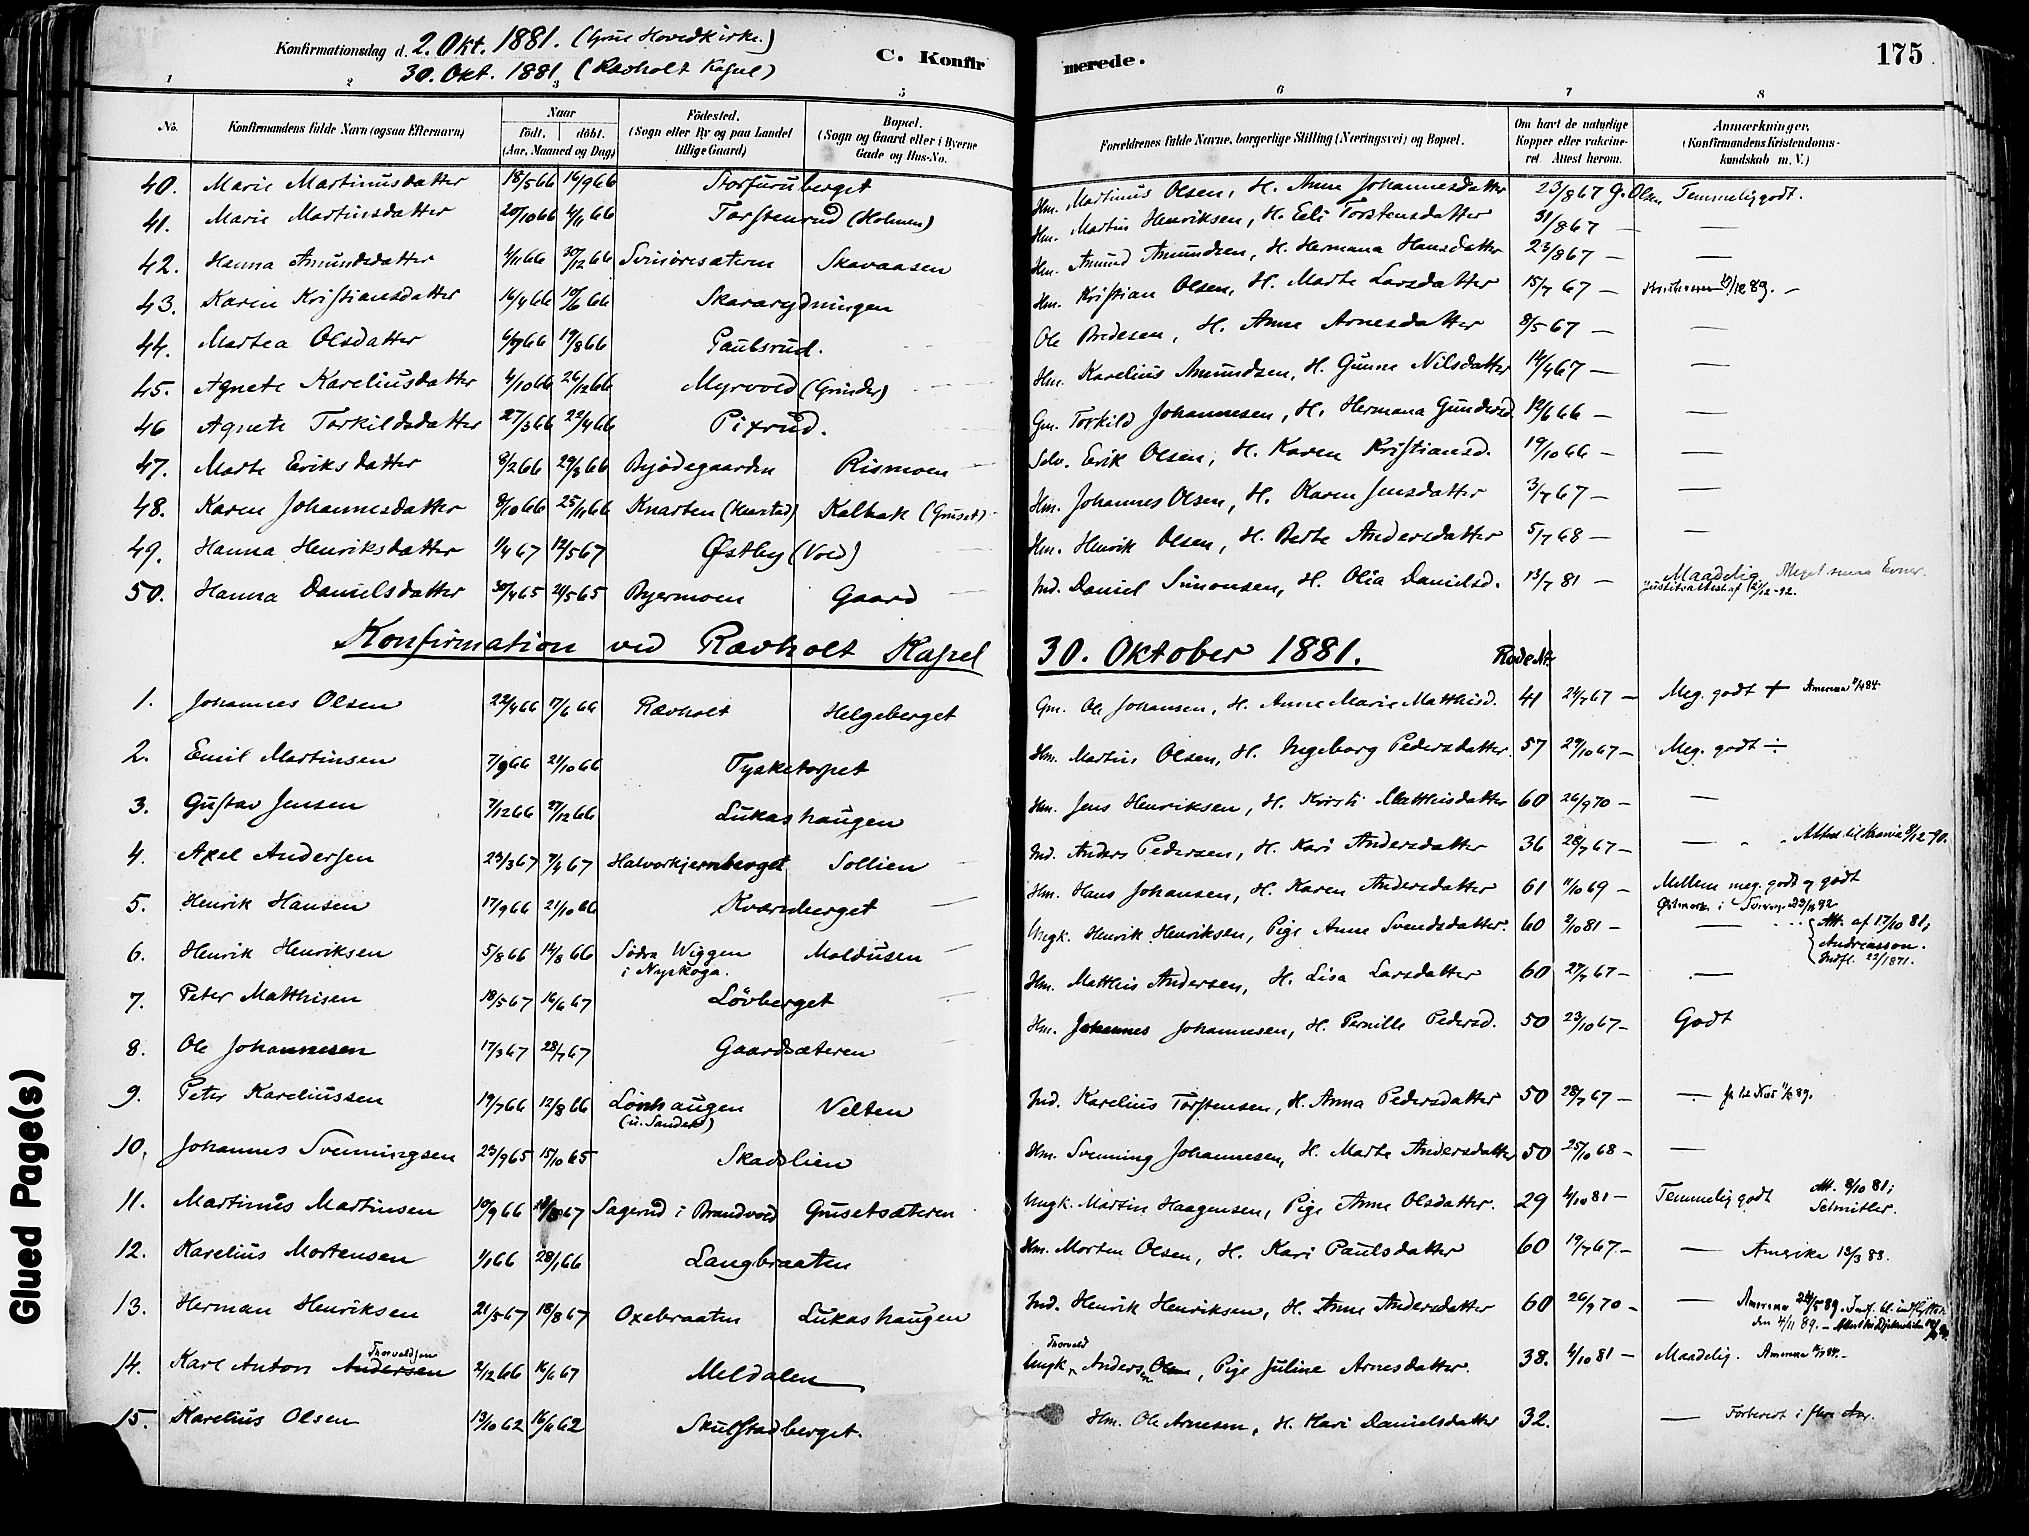 Konfirmationsdag d. 2. Okt. 1881. (Grue Hovedkirke.)
30. Okt. 1881 (Ravholt Kapel)
C. Konfirmerede.
175
1 2 3 5 6 7 8
No. Konfirmandens fulde Navn (ogsaa Efternavn) Naar födt. döbt. (Aar, Maaned og Dag) Födested. (Sogn eller By og paa Landet tillige Gaard) Bopæl. (Sogn og Gaard eller i Byerne Gade og Hus-No. Forældrenes fulde Navne, borgerlige Stilling (Næringsvei) og Bopæl. Om havt de naturlige Kopper eller vaccineret. Attest herom. Anmærkninger. (Konfirmandens Kristendomskundskab m. V.)
40. Marie Martinusdatter 18/5 66 16/9 66 Storfuruberget Hm. Martinus Olsen, H. Anne Johannesdatter 23/8 67 G. Olsen Temmelig godt.
41. Marie Martinsdatter 20/10 66 4/11 66 Torstenrud (Holmen) Hm. Martin Henriksen, H. Eli Torstensdatter 31/8 67 — —
42. Hanna Amundsdatter 4/11 66 30/12 66 Skavaasen Hm. Amund Amundsen, H. Hermana Hansdatter 23/8 67 — —
43. Karen Kristiansdatter 16/4 66 10/6 66 Skararydningen Hm. Kristian Olsen, H. Marte Larsdatter 15/7 67 —
44. Martea Olsdatter 19/8 66 Paulsrud. Ole Bredesen, H. Anne Arnesdatter 8/5 67 — —
45. Agnete Kareliusdatter 4/10 66 26/12 66 Myrvold (Grinder) Hm. Karelius Amundsen, H. Gunne Nilsdatter 14/4 67 — —
46 Agnete Torkildsdatter 27/3 66 22/4 66 Pixrud. Gm. Torkild Johannesen, H. Hermana Gundersd. 12/6 66 — —
47. Marte Eriksdatter 8/2 66 29/3 66 Bjödegaarden Rismoen Selv. Erik Olsen, H. Karen Kristiansd. 19/10 66 — —
48. Karen Johannesdatter 8/10 66 25/11 66 Knarten (Hverstad) Kalbak (Gruset) Hm. Johannes Olsen, H. Karen Jensdatter 3/7 67 — —
49. Hanna Henriksdatter 1/4 67 12/5 67 Østby (Vold) Hm. Henrik Olsen, H. Berte Andersdatter 5/7 68 — —
50. Hanna Danielsdatter 30/4 65 21/5 65 Byermoen Gaard Ind. Daniel Simonsen, H. Olia Danielsd. 13/7 81 — Maadelig. Meget smaa Evner.
Konfirmation ved Ravholt Kapel 30. Oktober 1881. Rode Nr.
1. Johannes Olsen 22/4 66 17/6 66 Rævholt Helgeberget Gm. Ole Johansen, H. Anne Marie Matthisd. 41 24/7 67 — Meg. godt +
2. Emil Martinsen 7/9 66 21/10 66 Tysketorpet Hm. Martin Olsen, H. Ingeborg Pedersdatter. 57 29/10 67 — Meg. godt ÷
3. Gustav Jensen 7/12 66 27/12 66 Lukashaugen Hm. Jens Henriksen, H. Kirsti Matthisdatter 60 26/9 70 — —
4. Axel Andersen 23/3 67 7/4 67 Halvorkjernberget Sollien Ind. Anders Pedersen, H. Kari Andersdatter 36 28/7 67 — —
5. Henrik Hansen 17/9 66 21/10 66 Kværnberget Hm. Hans Johansen, H. Karen Andersdatter 61 11/10 69 — Mellem meg. godt og godt
6. Henrik Henriksen 5/8 66 14/8 66 Södra Wiggen i Nyskoga. Moldusen Ungk. Henrik Henriksen, Pige Anne Svendsdatter. 60 2/10 81 — — Att. af 17/10 81; Andreasson. Indfl. 22/1871.
7. Peter Matthisen 18/5 67 16/6 67 Lövberget Hm. Matthis Andersen, H. Lisa Larsdatter 60 27/7 67 — —
8. Ole Johannesen 17/3 67 28/7 67 Gaardsæteren Hm. Johannes Johannesen, H. Pernille Pedersd. 50 23/10 67 — Godt
9. Peter Kareliussen 19/7 66 12/8 66 Lönhaugen (u. Sander) Velten Ind. Karelius Torstensen, H. Anna Pedersdatter 50 28/7 67 — —
10. Johannes Svenningsen 23/9 65 15/10 65 Skadslien Hm. Svenning Johannesen, H. Marte Andersdatter 50 25/10 68 — —
11. Martinus Martinsen 10/9 66 Sagerud i Brandvold Grusetsæteren Ungk. Martin Haagensen, Pige Anne Olsdatter. 29 4/10 81 — Temmelig godt Att. 8/10 81; Schmitler.
12. Karelius Mortensen 1/1 66 28/1 66 Langbraaten Hm. Morten Olsen, H. Kari Paulsdatter 60 19/7 67 — — Amerika 13/3 88.
13. Herman Henriksen 21/5 67 18/8 67 Oxebraaten Lukashaugen Ind. Henrik Henriksen, H. Anne Andersdatter 60 26/9 70 — —
14. Karl Anton Andersen Thorvaldsen 2/12 66 16/6 67 Meldalen Ungk. Thorvald Andersen, Pige Juline Arnesdatter. 38. 4/10 81 — Maadelig.
15. Karelius Olsen 13/10 62 Skulstadberget. Hm. Ole Arnesen, H. Kari Danielsdatter 32. —
Glued Page(s)